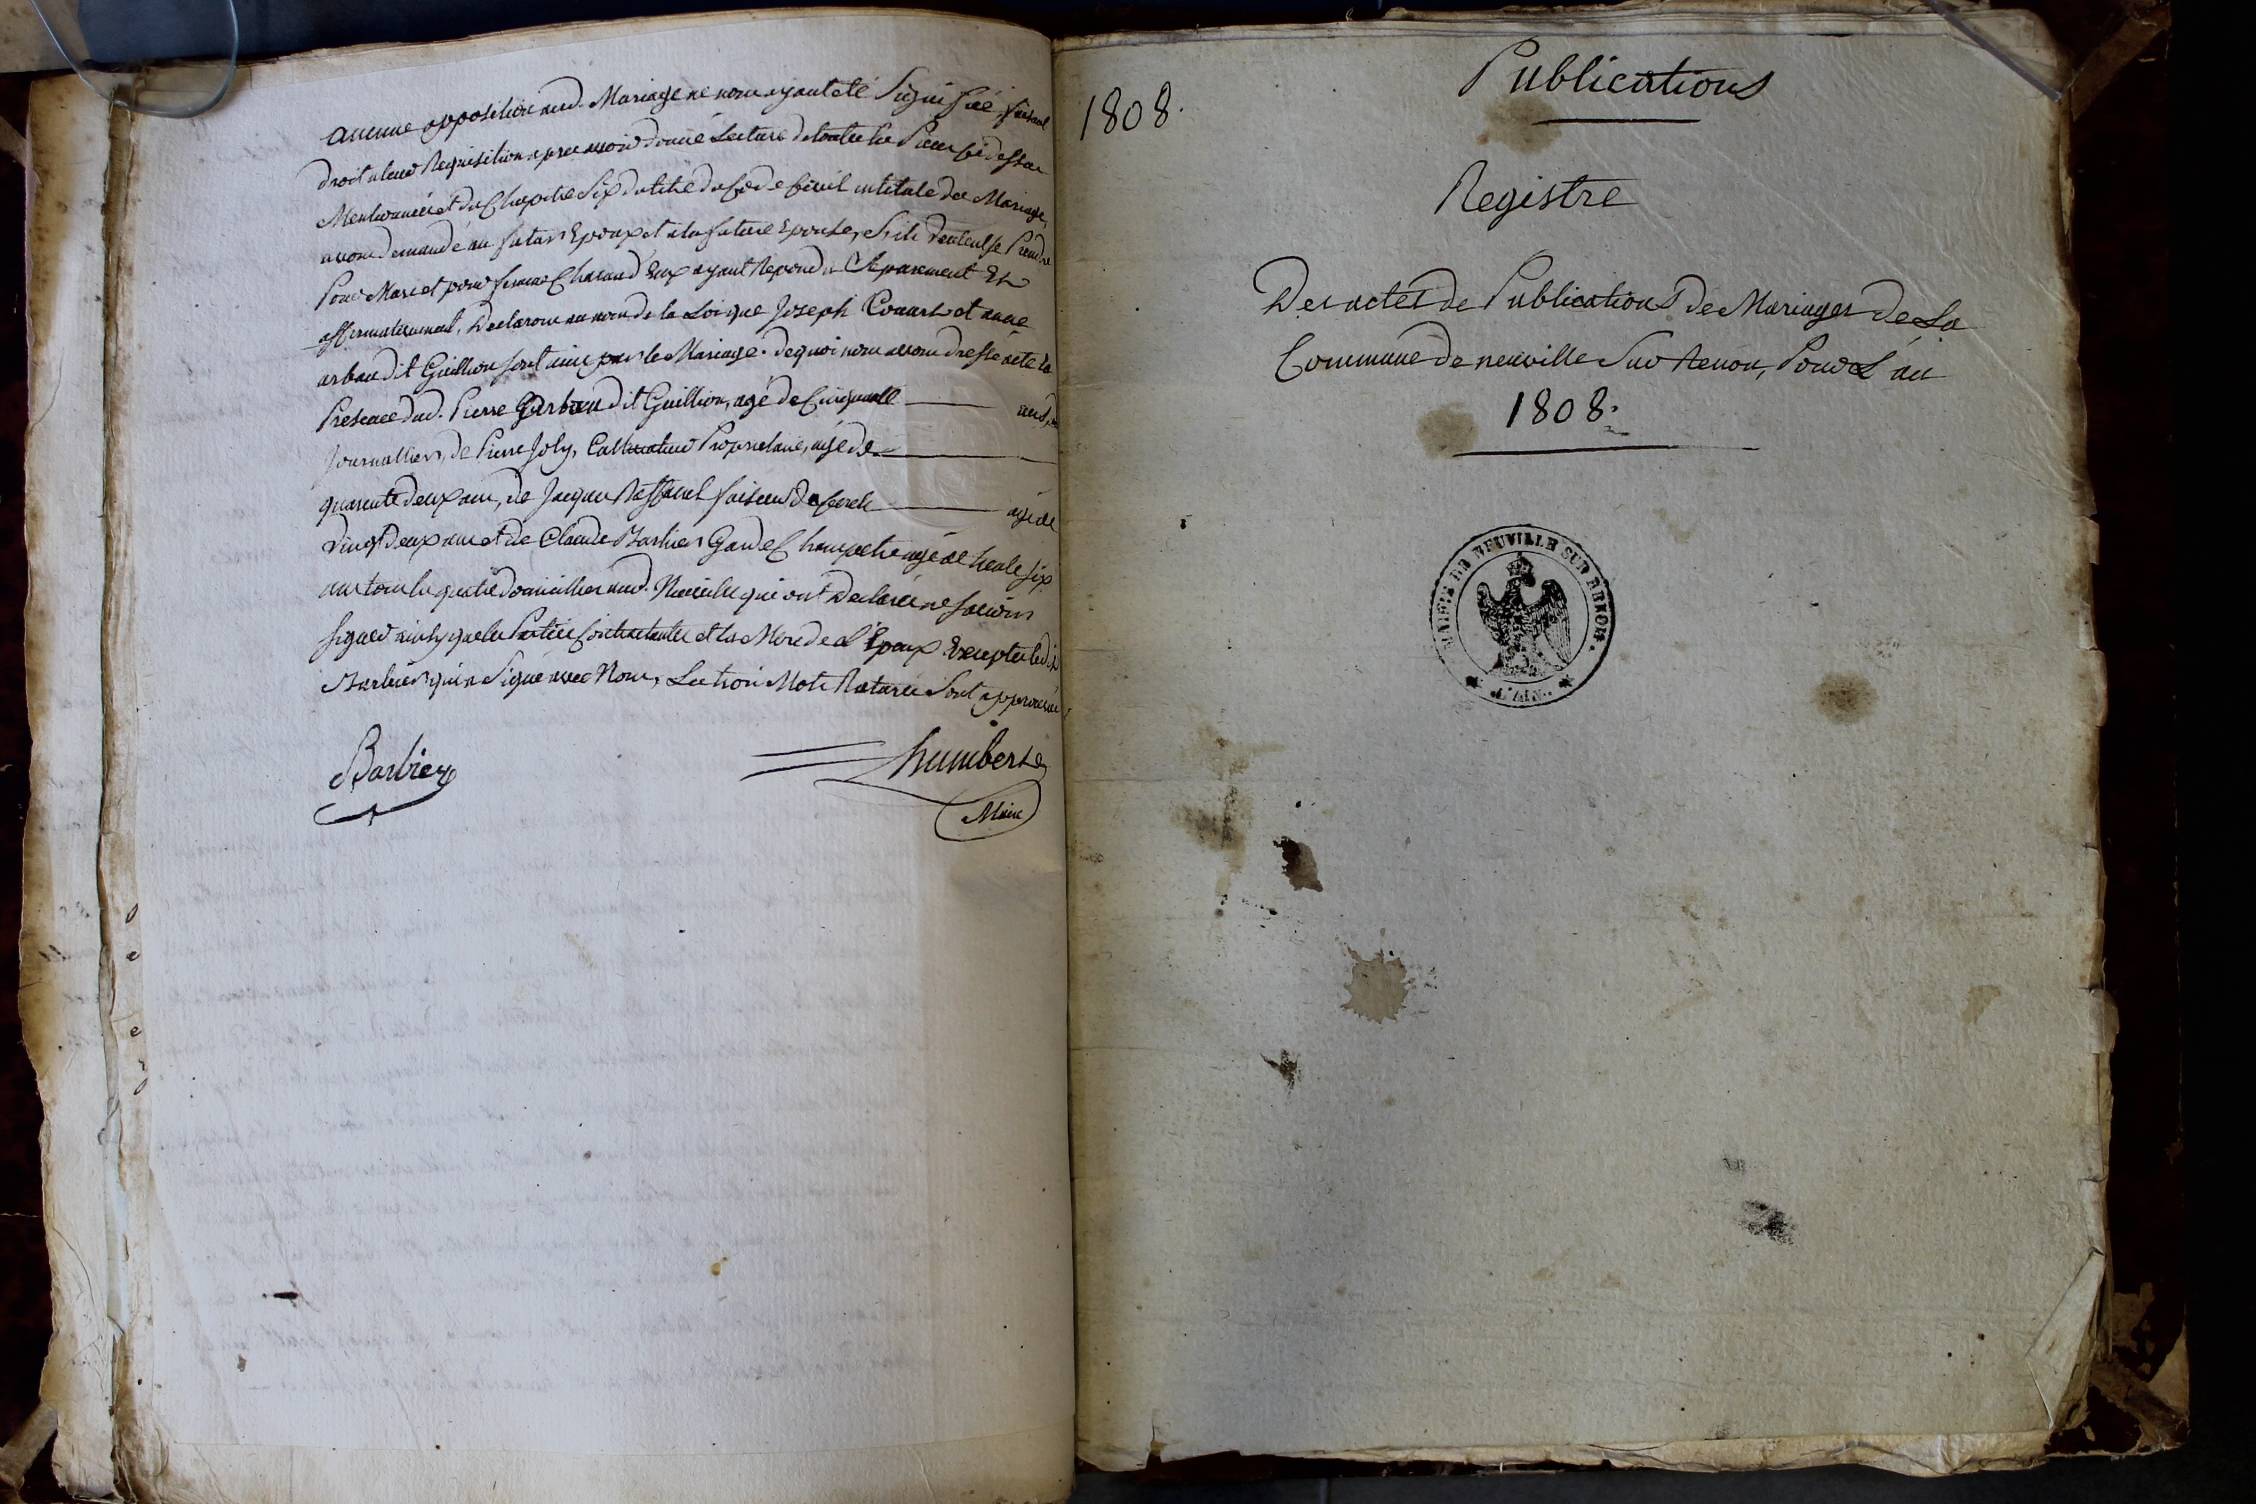 aucune opposition aud. Mariage ne nous ayant eté Signifiée, faisant
droit a leur Requisition apres avoir donné Lecture de toutes les Pieces ci dessus
Mentionnées et du Chapitre Six du titre du Code Civil intitulé du Mariage,
avons demandé au futur Epoux et a la future Epouse, S'ils veulent se Prendre
Pour Mari et pour femme Chacun d'Eux ayant Repondu Separement Et
affirmativement, Declarons au nom de la Loi que Joseph Conart et anne
arban dit Guillion sont unis par le Mariage. de quoi nous avons dressé acte En
Presence dud. Pierre arban dit Guillion, agé de Cinquante ans,
Journallier, de Pierre Joly, Cultivateur Proprietaire, agé de
quarante deux ans, de Jacques faiseur de agé de
vingt deux ans et de Claude Barbier Garde Champetre agé de trente six
ans tous les quatre domicilliés aud. Neuville qui ont Declaré ne savoir
signer ainsy que les Parties Contractantes et la Mere de L'Epoux Excepté led.
Barbier qui a Signé avec Nous, Les trois Mots Raturés Sont approuvés
Barbier
humbert
Maire
1808.
Publications
Registre
Des actes de Publications de Mariages de La
Commune de neuville Sur Renon, Pour L'an
1808.
MAIRIE DE NEUVILLE SUR RENON.
L'AIN.